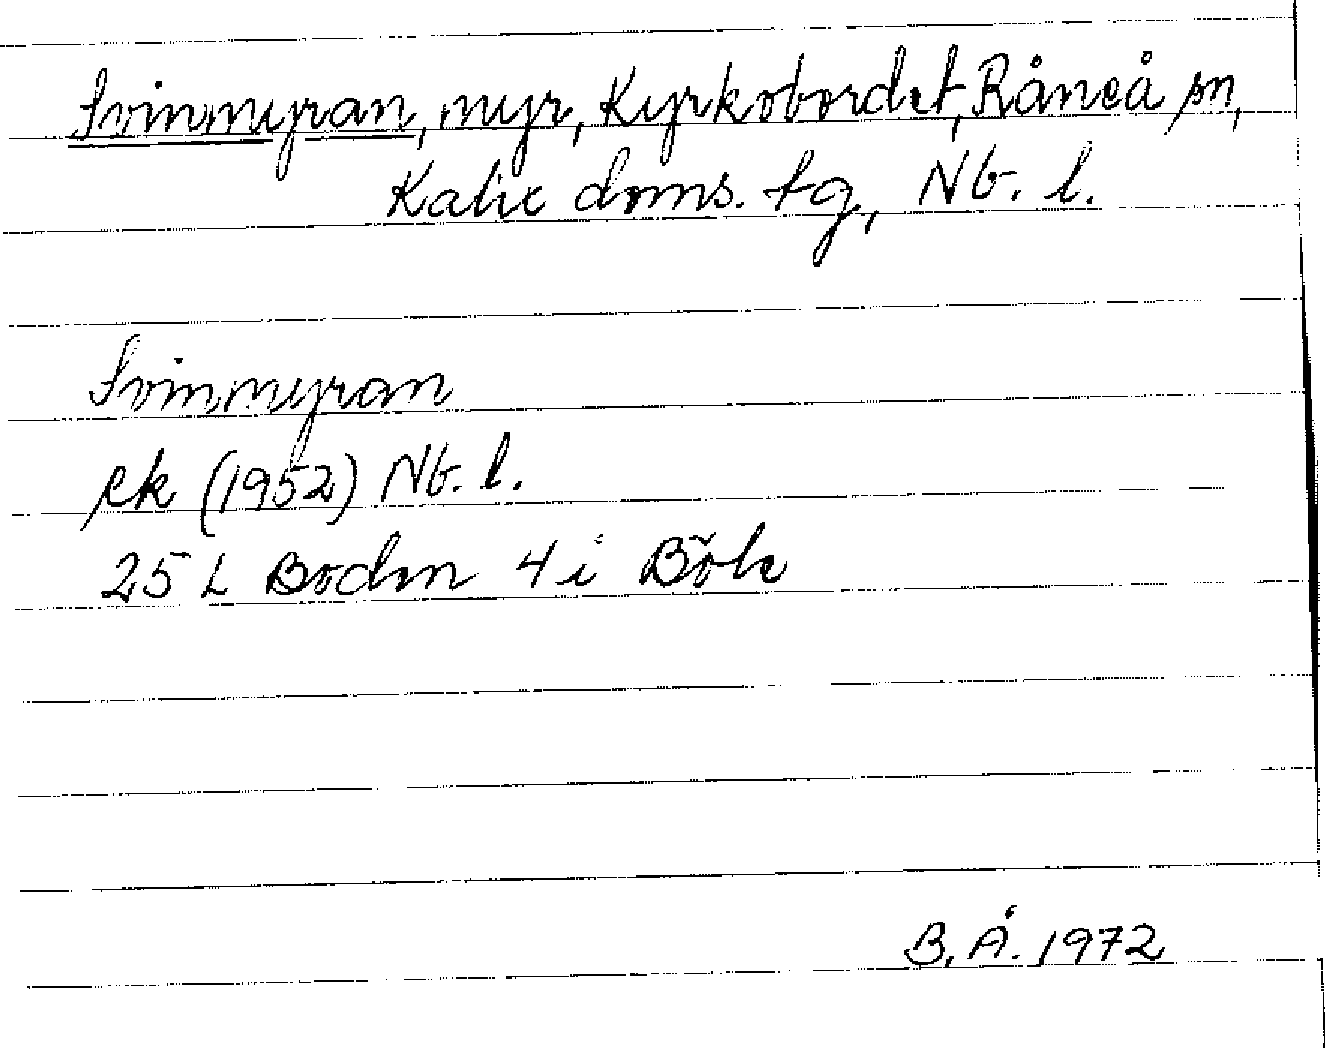 Svinmyran, myr, Kyrkobordet, Råneå sn,
Kalix doms. tg, Nb. l.
Svinmyran
ek (1952) Nb. l.
25 L Boden 4 i Böle
B. Å. 1972